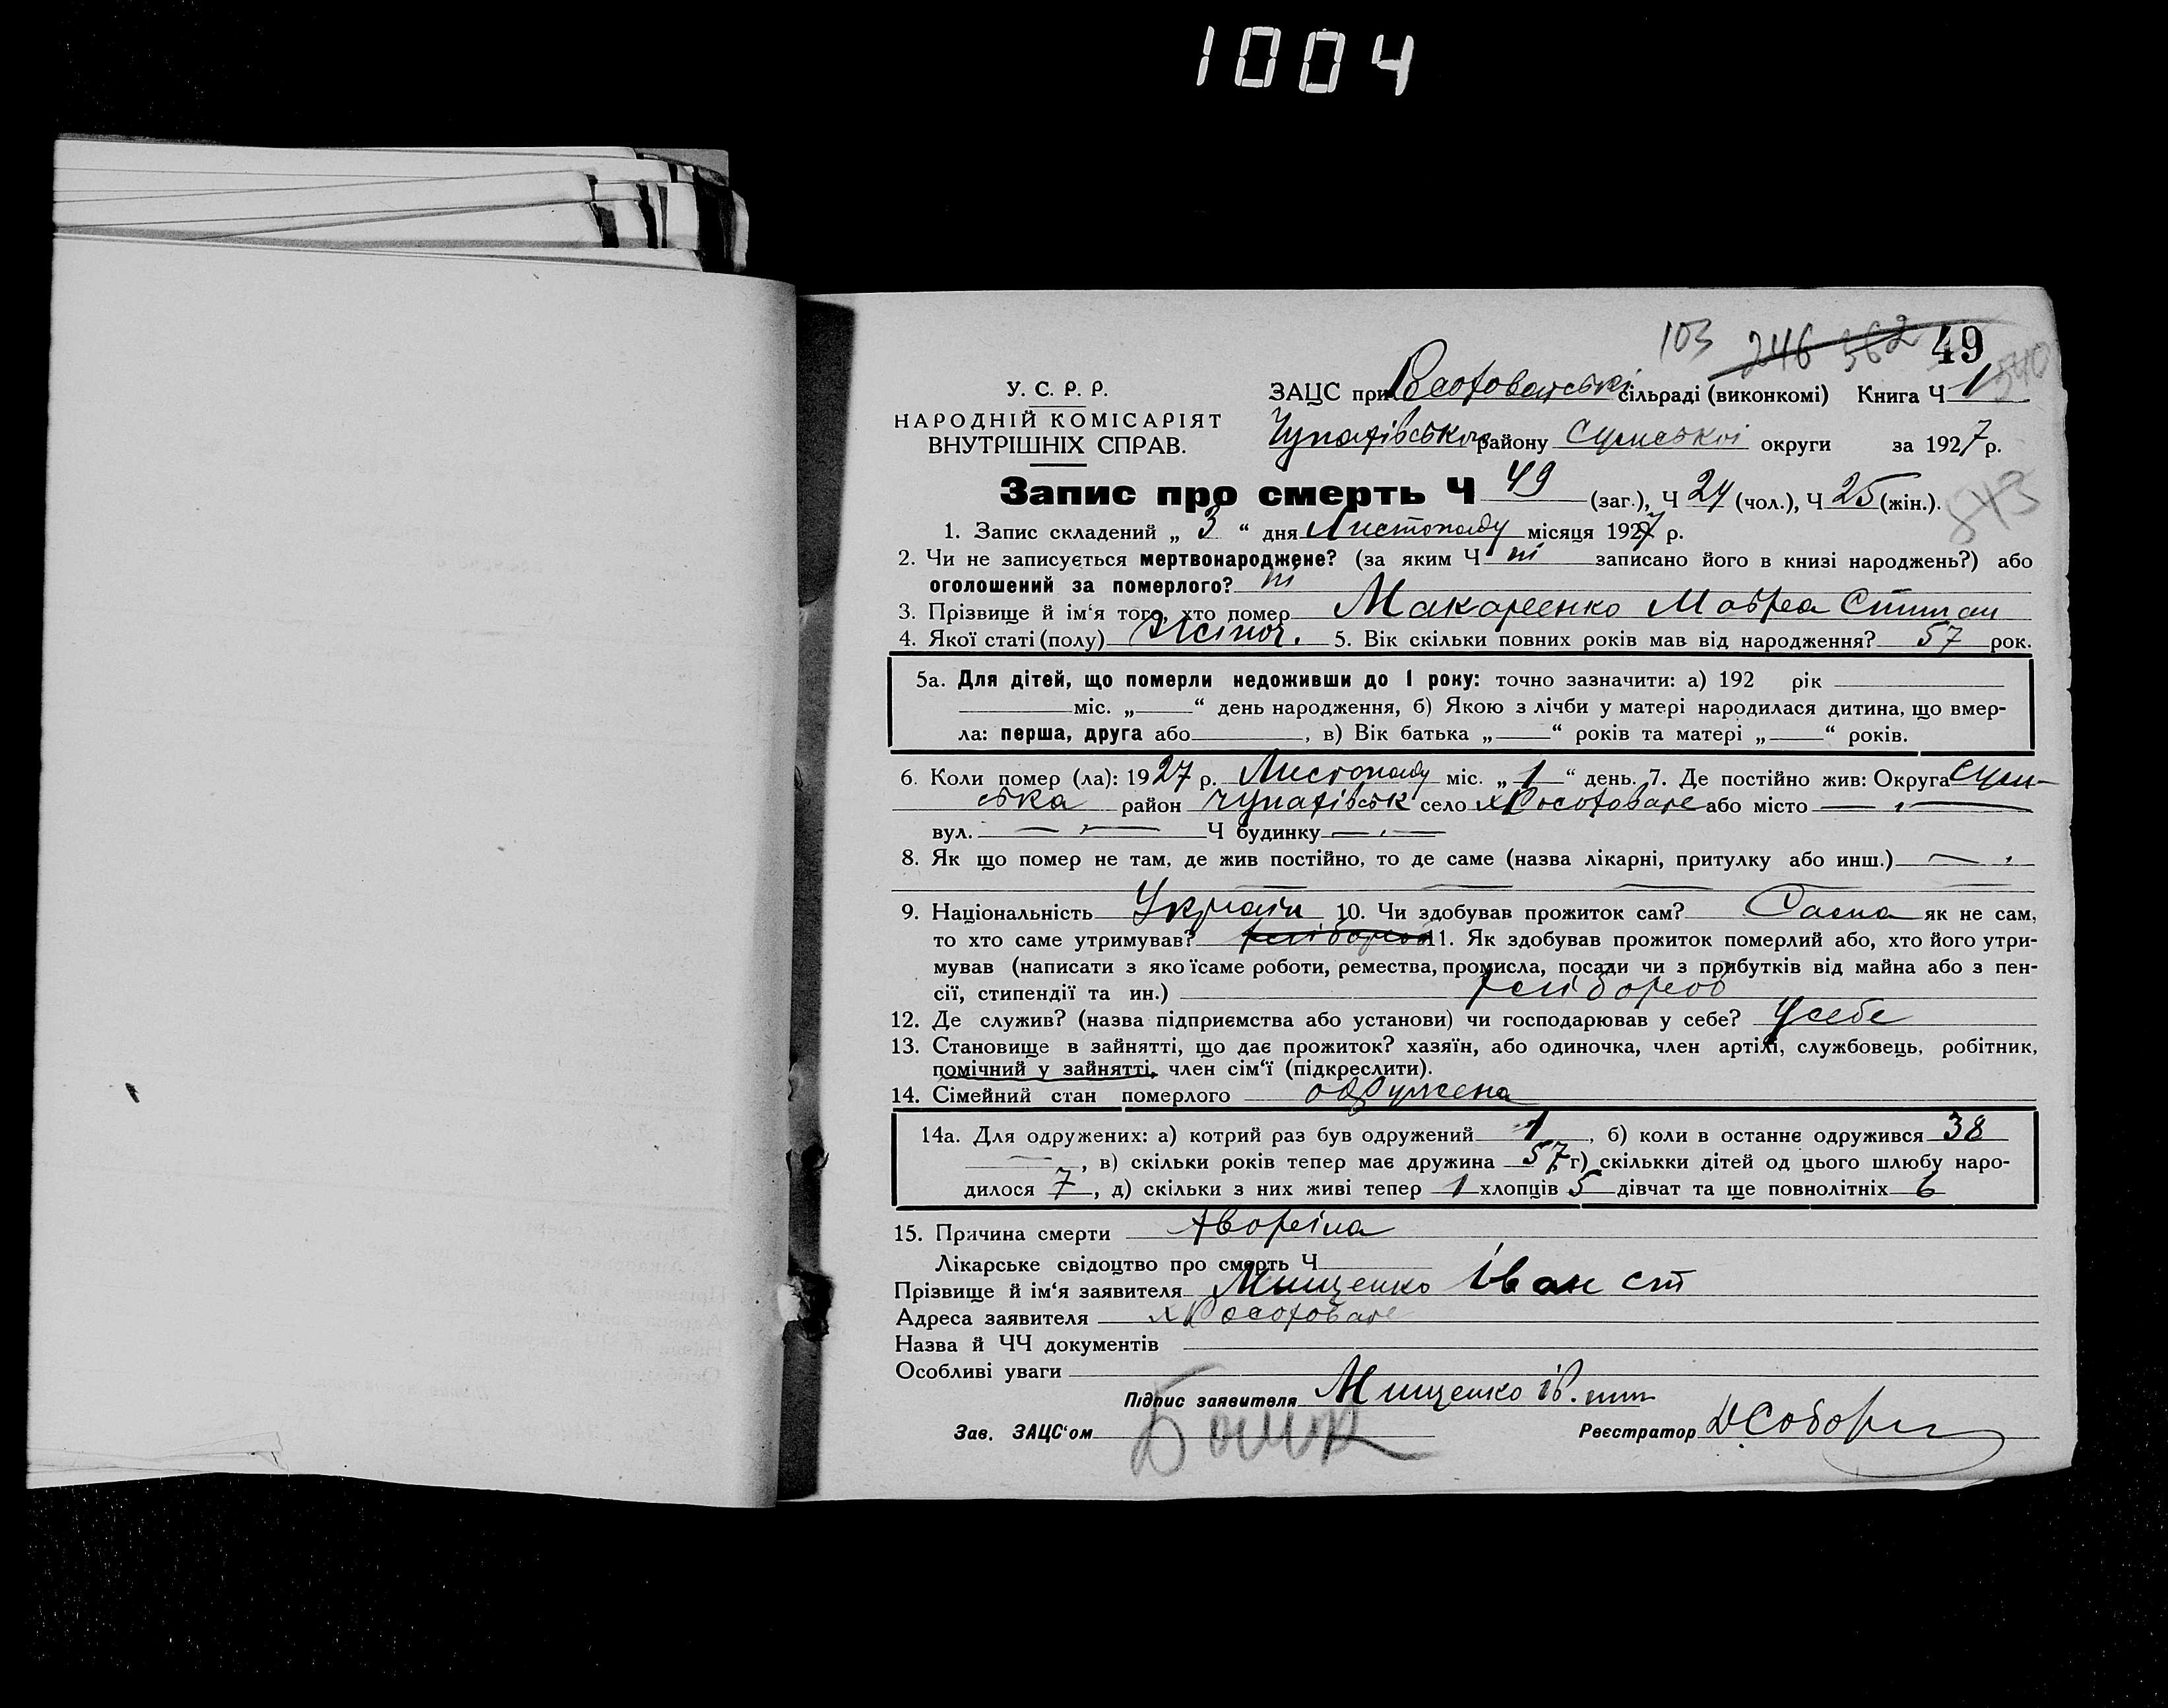 1004
103 246 362 49
540
У. С. Р. Р.
НАРОДНІЙ КОМІСАРІЯТ
ВНУТРІШНІХ СПРАВ.
ЗАЦС при сільраді (виконкомі) Книга Ч 1
Чупахівського району Сумської округи за 1927 р.
843
Запис про смерть Ч 49 (заг.), Ч 24 (чол.), Ч 25 (жін.).
1. Запис складений „ 3 “ дня Листопаду місяця 1927 р.
2. Чи не записується мертвонароджене? (за яким Ч ні записано його в книзі народжень?) або
оголошений за померлого? ні
3. Прізвище й ім‘я того, хто помер Макаренко
4. Якої статі (полу) Жіноч. 5. Вік скільки повних років мав від народження? 57 рок.
5а. Для дітей, що померли недоживши до 1 року: точно зазначити: а) 192 рік
міс. „ “ день народження, б) Якою з лічби у матері народилася дитина, що вмер-
ла: перша, друга або , в) Вік батька „ “ років та матері „ “ років.
6. Коли помер (ла): 1927 р. Листопаду міс. „ 1 “ день. 7. Де постійно жив: Округа Сум-
ська район Чупахівськ село х або місто
вул. Ч будинку
8. Як що помер не там, де жив постійно, то де саме (назва лікарні, притулку або инш.)
9. Національність Україн 10. Чи здобував прожиток сам? Сама як не сам,
то хто саме утримував? хлібороб 11. Як здобував прожиток померлий або, хто його утри-
мував (написати з яко їсаме роботи, ремества, промисла, посади чи з прибутків від майна або з пен-
сії, стипендії та ин.) хлібороб
12. Де служив? (назва підприємства або установи) чи господарював у себе? У себе
13. Становище в зайнятті, що дає прожиток? хазяїн, або одиночка, член артілі, службовець, робітник,
помічний у зайнятті, член сім‘ї (підкреслити).
14. Сімейний стан померлого одружена
14а. Для одружених: а) котрий раз був одружений 1 , б) коли в останнє одружився 38
, в) скільки років тепер має дружина 57 г) скількки дітей од цього шлюбу наро-
дилося 7 , д) скільки з них живі тепер 1 хлопців 5 дівчат та ще повнолітніх 6
15. Причина смерти
Лікарське свідоцтво про смерть Ч
Прізвище й ім‘я заявителя Мищенко Іван ст
Адреса заявителя х
Назва й ЧЧ документів
Особливі уваги
Підпис заявителя Мищенко ів.
Зав. ЗАЦС‘ом Реєстратор